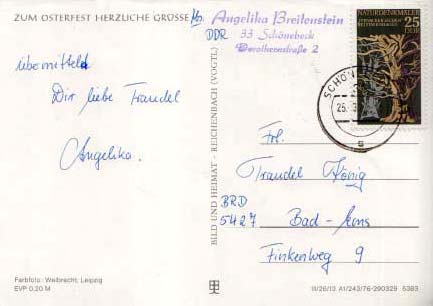 ZUM OSTERFEST HERZLICHE GRÜSSE
übermittelt
Dir liebe Traudel
Angelika.
Farbfoto: Weibrecht, Leipzig
EVP 0,20 M
BILD UND HEIMAT - REICHENBACH (VOGTL)
Angelika Breitenstein
DDR 33 Schönebeck
Dorotheenstraße 2
NATURDENKMÄLER
25
DDR
SCHÖN
25.
Frl.
Traudel König
BRD
5427 Bad-Ems
Finkenweg 9
III/26/13 A1/243/76-290329 6383